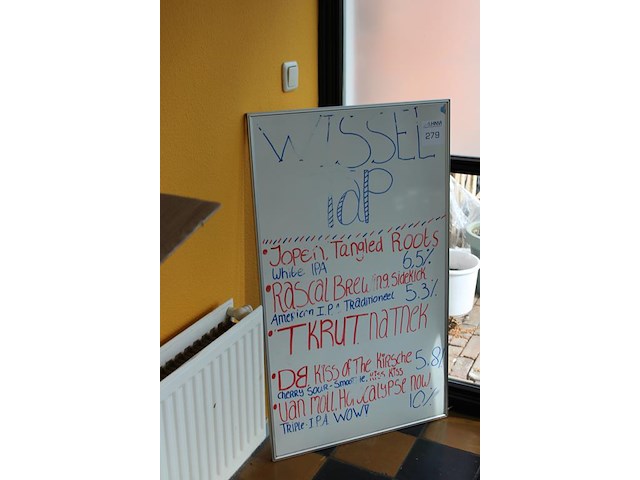 WISSEL
279
iaP
• Jopen, Tangled Roots
White IPA 6,5%
• RASCAL Brewing. Sidekick
American I.P.A TRADitioneel 5.3%
• TKRUT naTneK
• DB. Kiss of The Kirsche 5.8%
cherry SOUR - Smoothie, Kiss Kiss
• van Moll, Hupocalypse now
TRIPLE I.P.A WOW! 10%